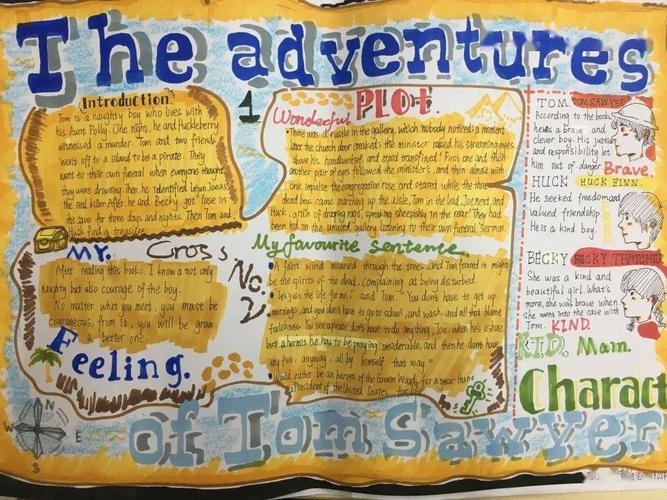 The adventures
Introduction
Tom is a naughty boy who lives with
his Aunt Polly. One night, he and Huckleberry
witnessed a murder. Tom and two friends
went off to a island to be a pirate. They
went to their own funeral when everyone thought
they were drowning. Then he identified Injun Joe as
the real killer. After he and Becky got lose in
the cave for three days and nights. Then Tom and
Huck find a treasure.
1
Wonderful PLOT.
There was a rustle in the gallery, which nobody noticed; a moment
later the church door creaked; the minister raised his streaming eyes
above his handkerchief, and stood transfixed! First one and then
another pair of eyes followed the minister's, and then almost with
one impulse the congregation rose and stared while the three
dead boys came marching up the aisle, Tom in the lead, Joe next, and
Huck, a ruin of drooping rags, sneaking sheepishly in the rear! They had
been hid in the unused gallery listening to their own funeral sermon
TOM TOM SAWYER
According to the book,
he was a brave and
clever boy. His justice
and responsibility let
him out of danger. Brave.
HUCK HUCK FINN.
He seeked freedom and
valued friendship.
He is a kind boy.
BECKY BECKY THATCHER
She was a kind and
beautiful girl. What's
more, she was brave when
she went into the cave with
Tom. KIND.
KID. Main.
Charact
My.
Cross,
No.
2
After reading this books. I know a not only
naughty but also courage of the boy.
No matter what you meet, you must be
courageous, from it, you will be grow
a better one.
Feeling.
My favourite sentence
A faint wind moaned through the trees, and Tom feared it might
be the spirits of the dead, complaining at being disturbed.
the life for me," said Tom. "You don't have to get up
mornings, and you don't have to go to school, and wash, and all that blame
foolishness. You see a pirate don't have to do anything, Joe, when he's ashore
but a hermit he has to be praying considerable, and then he don't have
any fun, anyway, all by himself that way."
would rather be an heroes of the Green Woods for a year than
President of the United States for
N
W E
S
of Tom Sawyer